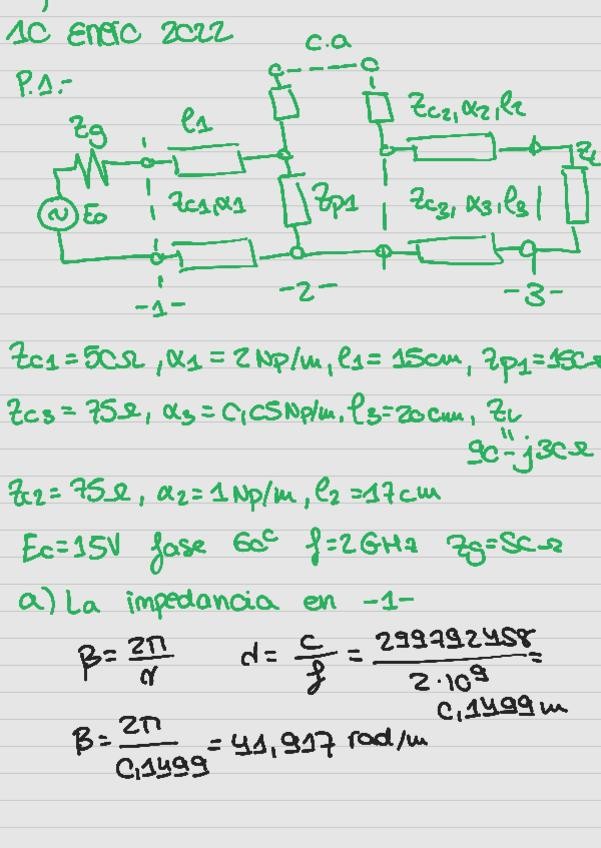 10 ENERO 2022
c.a
P.1.-
Zg
l1
Zc2, α2, l2
ZL
E0
Zc1, α1
Zp1
Zc3, α3, l3
-1-
-2-
-3-
Zc1 = 50Ω, α1 = 2 Np/m, l1 = 15cm, Zp1 = 150Ω
Zc3 = 75Ω, α3 = 0,05 Np/m, l3 = 20cm, ZL
"
90 - j30Ω
Zc2 = 75Ω, α2 = 1 Np/m, l2 = 17cm
E0 = 15V fase 60° f = 2 GHz Zg = 50Ω
a) La impedancia en -1-
β = 2π/λ λ = c/f = 299792458/2·10⁹ =
0,1499 m
β = 2π/0,1499 = 41,917 rad/m